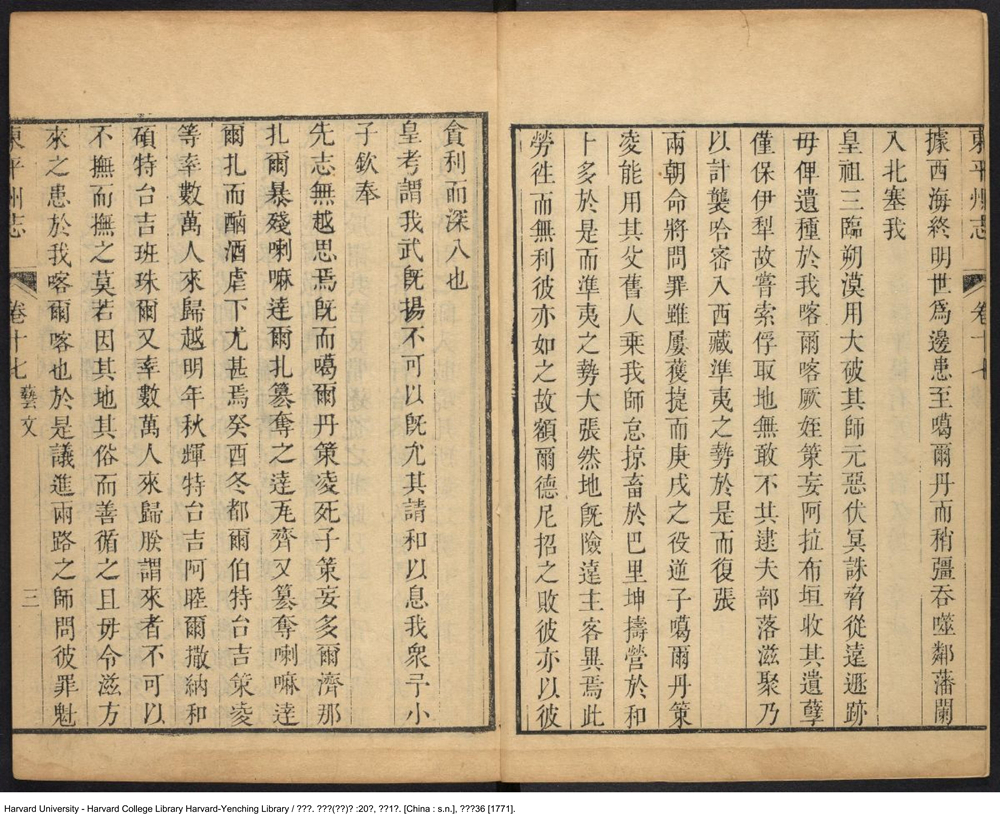 東平州志 卷十七
據西海終明世爲邊患至噶爾丹而稍彊吞噬鄰藩闌
入北塞我
皇祖三臨朔漠用大破其師元惡伏冥誅脅從遠遯跡
毋俾遺種於我喀爾喀厥姪策妄阿拉布坦收其遺孽
僅保伊犁故嘗索俘取地無敢不共逮夫部落滋聚乃
以計襲哈宻入西藏準夷之勢於是而復張
兩朝命將問罪雖屢獲捷而庚戌之役逆子噶爾丹策
凌能用其父舊人乘我師怠掠畜於巴里坤擣營於和
卜多於是而準夷之勢大張然地旣險遠主客異焉此
勞徃而無利彼亦如之故額爾德尼招之敗彼亦以彼
貪利而深入也
皇考謂我武旣揚不可以旣允其請和以息我衆予小
子欽奉
先志無越思焉旣而噶爾丹策凌死子策妄多爾濟那
扎爾暴殘喇嘛達爾扎簒奪之達瓦齊又簒奪喇嘛達
爾扎而酗酒虐下尤甚焉癸酉冬都爾伯特台吉策凌
等率數萬人來歸越明年秋輝特台吉阿睦爾撒納和
碩特台吉班珠爾又率數萬人來歸朕謂來者不可以
不撫而撫之莫若因其地其俗而善循之且毋令滋方
來之患於我喀爾喀也於是議進兩路之師問彼罪魁
東平州志 卷十七 藝文 三
Harvard University - Harvard College Library Harvard-Yenching Library / ???. ???(??)? :20?, ??1?. [China : s.n.], ???36 [1771].